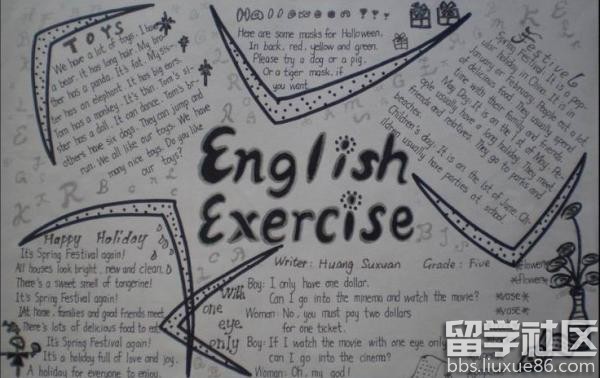 TOYS
We have a lot of toys. I have
a bear, it has long hair. My bro-
ther has a panda. It's fat. My sis-
ter has an elephant. It has big ears.
Tom has a monkey. It's thin. Tom's si-
ster has a doll. It can dance. Tom's br
others have six dogs. They can jump and
run. We all like our toys. We have
many nice toys. Do you like
our toys?
Halloween ???
Here are some masks for Halloween,
In back, red, yellow and green.
Please try a dog or a pig.
Or a tiger mask, if
you want.
Spring Festival: It is a pop-
ular holiday in China. It is in
January or February. People eat a lot
of delicious food. They usually spend
time with them family and friends.
May Day: It is on the 1st of May. Pe-
ople usually have a long holiday. They meet
friends and relatives. They go to parks and
beaches.
Children's day: It is on the 1st of June. Ch-
ildren usually have parties at school.
English
Exercise
Writer: Huang Suxuan Grade: Five
Happy Holiday
It's Spring Festival again!
All houses look bright, new and clean.
There's a sweet smell of tangerine!
It's Spring Festival again!
At home, families and good friends meet.
There's lots of delicious food to eat.
It's Spring Festival again!
It's a holiday full of love and joy.
A holiday for everyone to enjoy.
With
one
eye
only
Boy: I only have one dollar.
Can I go into the minema and watch the movie?
Woman: No, you must pay two dollars
for one ticket.
Boy: If I watch the movie with one eye only
can I go into the cinema?
Woman: Oh, my god!
*flower*
*flower*
*vase*
*vase*
留学社区
bbs.liuxue86.com